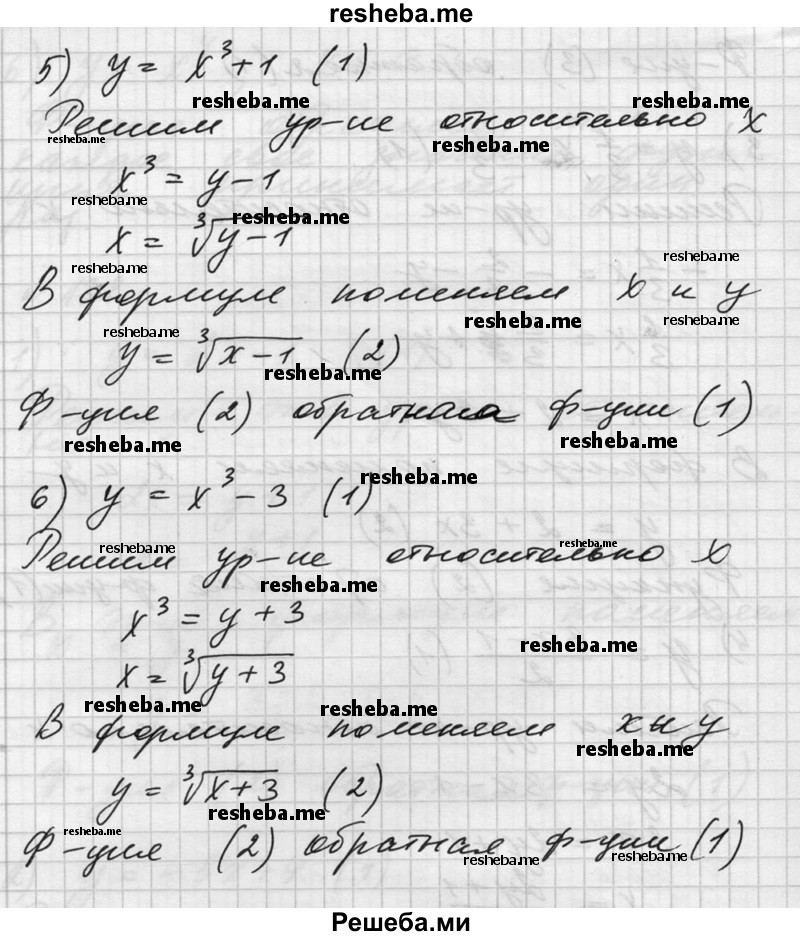 resheba.me
5) y = x³ + 1 (1)
resheba.me resheba.me
Решим ур-ие относительно x
resheba.me resheba.me
x³ = y – 1
resheba.me resheba.me
x = ∛(y – 1)
resheba.me resheba.me
В формуле поменяем x и y
resheba.me resheba.me resheba.me
y = ∛(x – 1) (2)
resheba.me
Ф-ция (2) обратная ф-ции (1)
resheba.me resheba.me
resheba.me
6) y = x³ – 3 (1)
resheba.me resheba.me
Решим ур-ие относительно x
resheba.me
x³ = y + 3
resheba.me
x = ∛(y + 3)
resheba.me resheba.me
В формуле поменяем x и y
resheba.me
y = ∛(x + 3) (2)
resheba.me
resheba.me
Ф-ция (2) обратная ф-ции (1)
resheba.me resheba.me
Решеба.ми